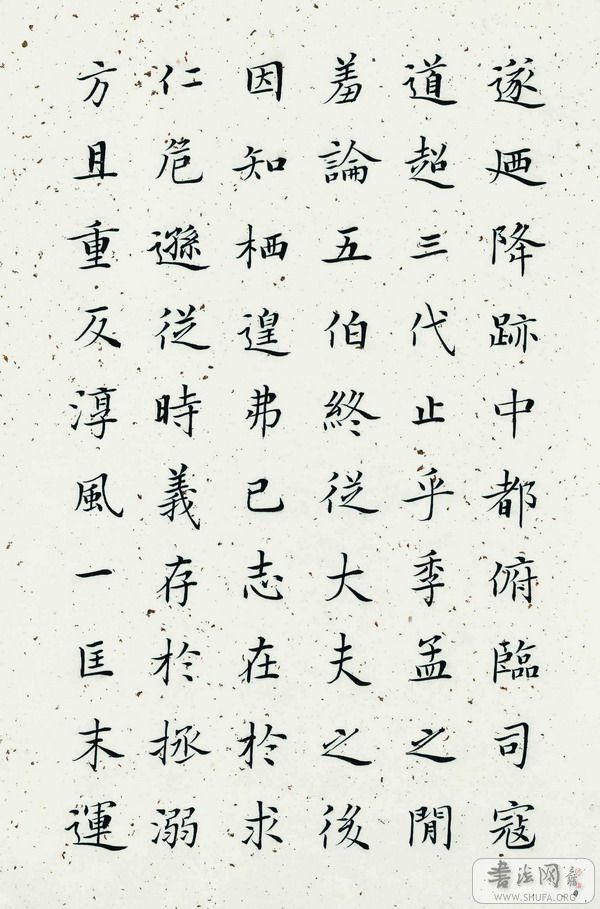 遂廼降跡中都俯臨司寇
道超三代止乎季孟之閒
羞論五伯終從大夫之後
因知栖遑弗已志在於求
仁危遜從時義存於拯溺
方且重反淳風一匡末運
書法网
WWW.SHUFA.ORG